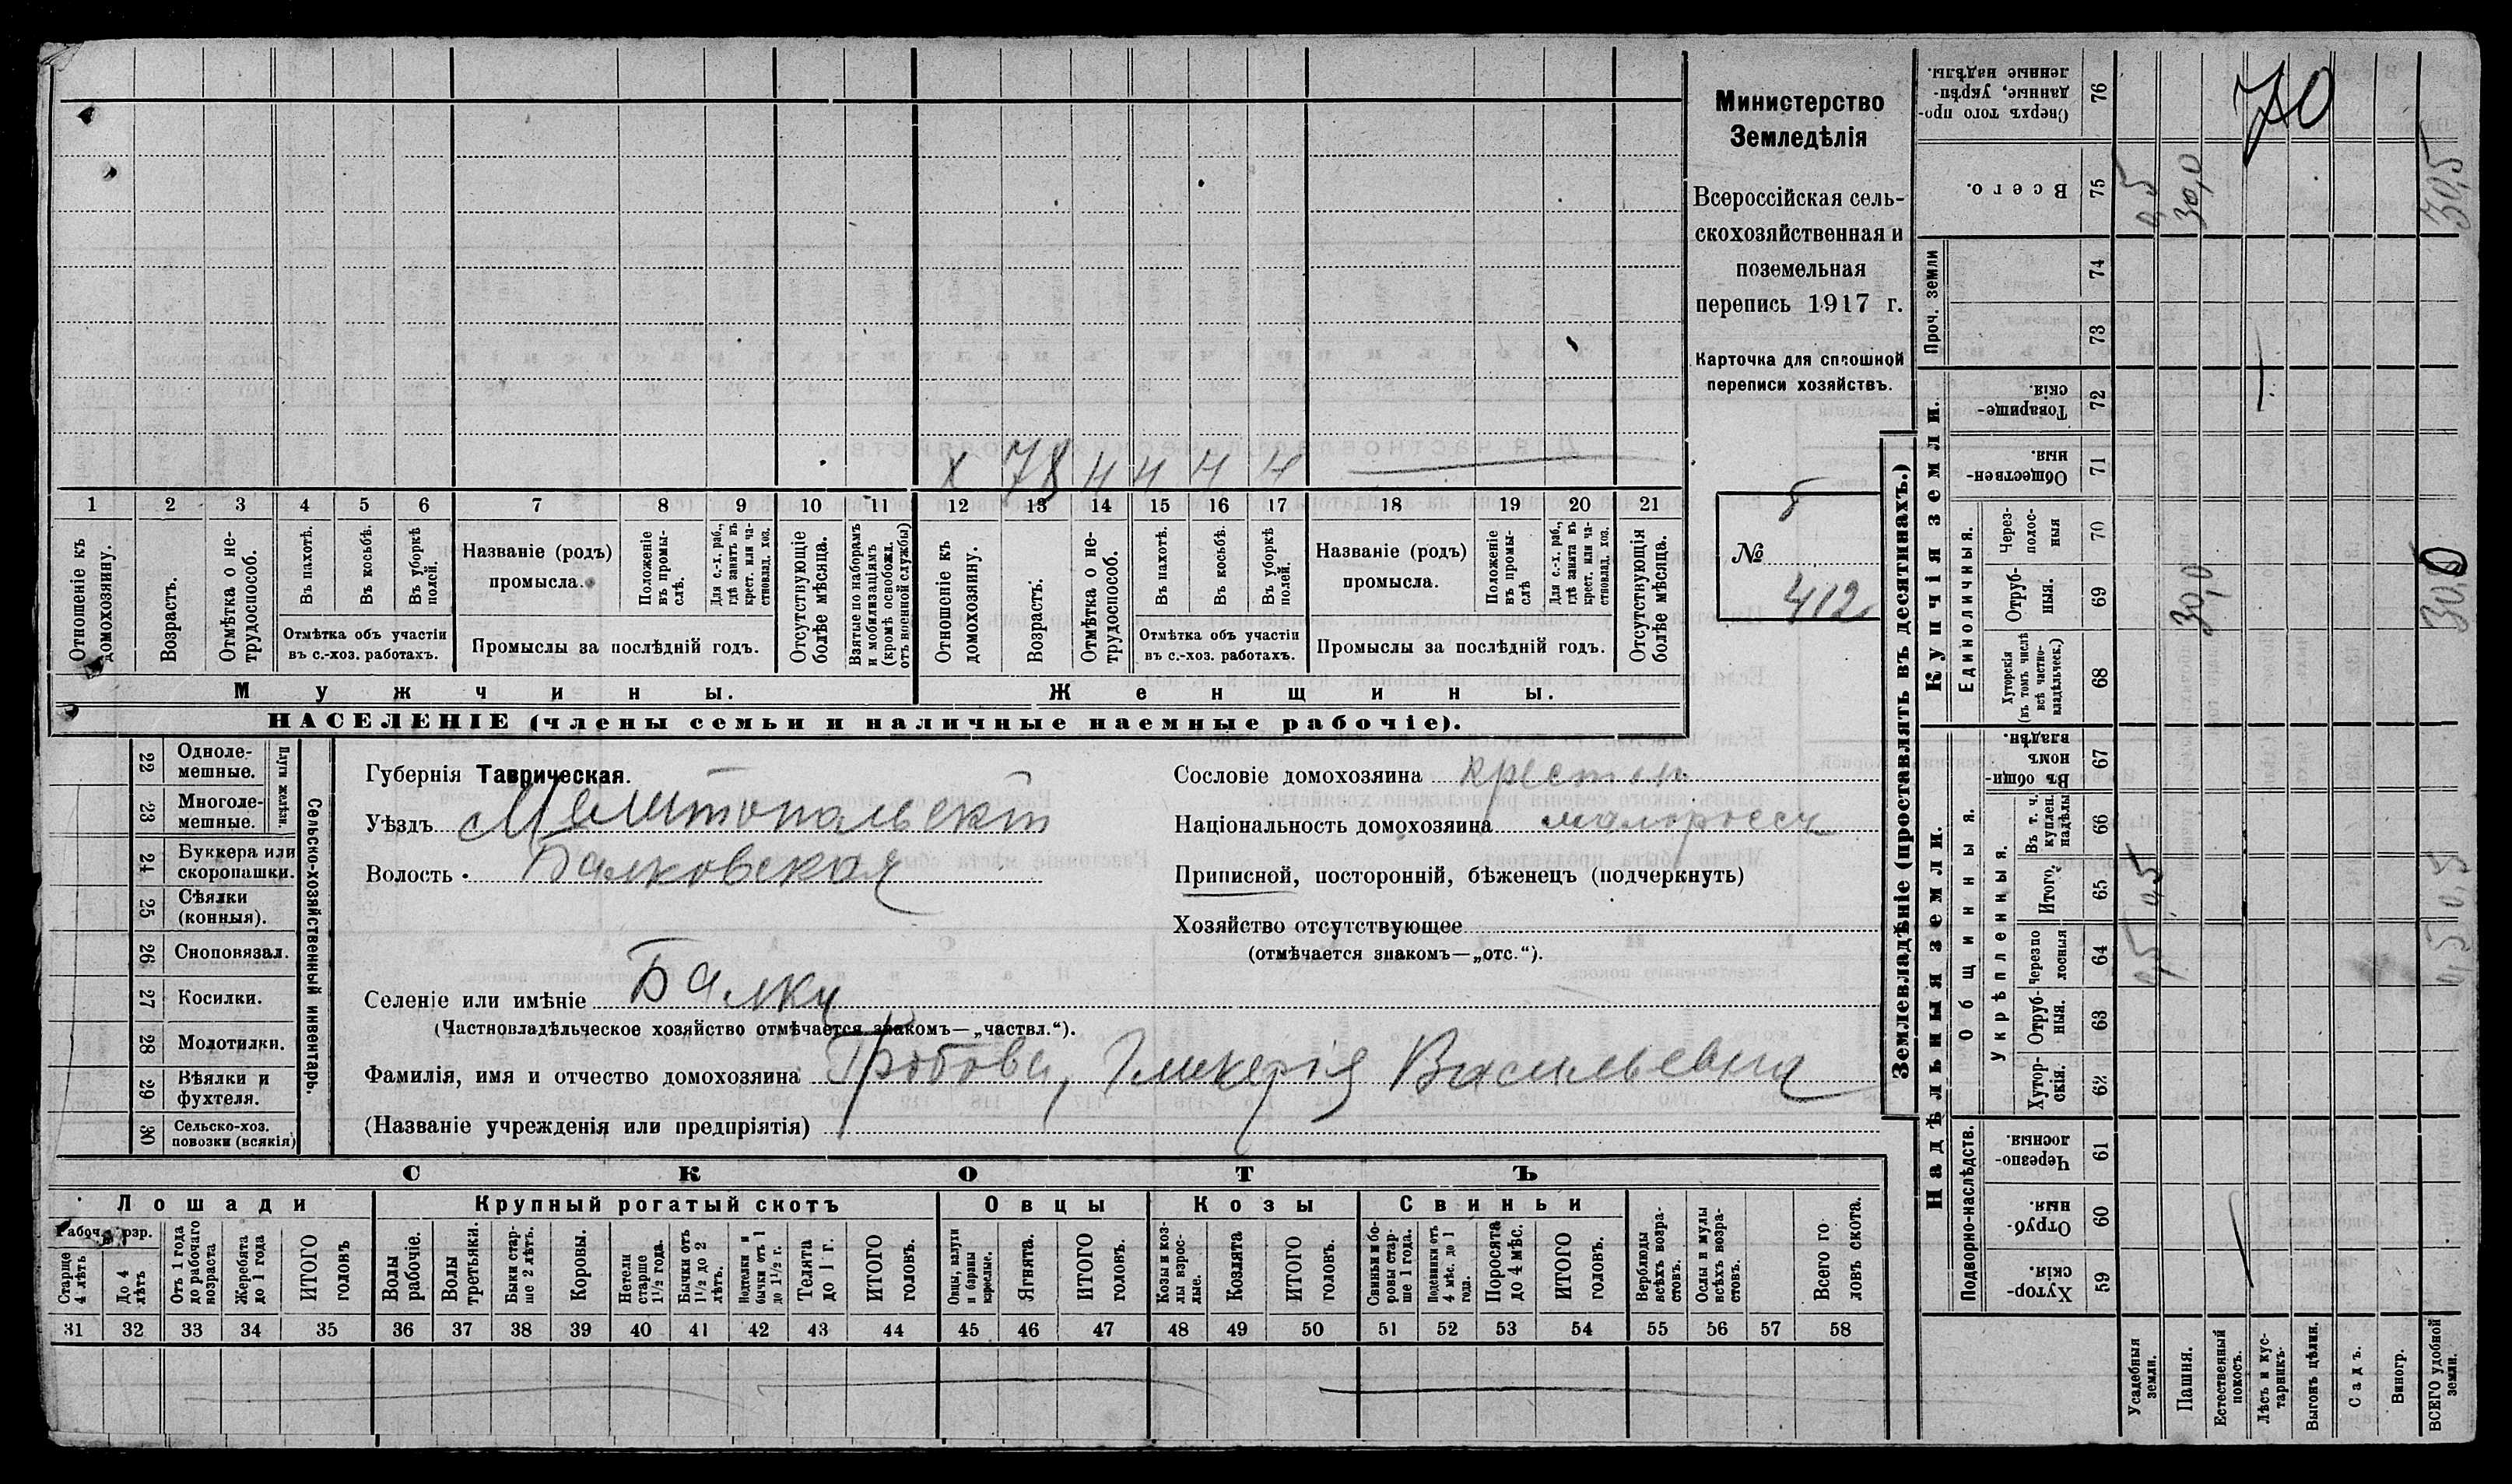 Министерство
Земледѣлія
Всероссійская сель-
скохозяйственная и
поземельная
перепись 1917 г.
Карточка для сплошной
переписи хозяйствъ.
5
№
412
х 78 н н н н
1 2 3 4 5 6 7 8 9 10 11 12 13 14 15 16 17 18 19 20 21
Отношеніе къ домохозяину.
Возрастъ.
Отмѣтка о не-трудоспособ.
Въ пахотѣ.
Въ косьбѣ.
Въ уборкѣ полей.
Отмѣтка объ участіи
въ с.-хоз. работахъ.
Названіе (родъ)
промысла.
Положеніе въ промы-слѣ.
Для с.-х. раб., гдѣ занятъ въ крест. или ча-стновлад. хоз.
Промыслы за послѣдній годъ.
Отсутствующіе болѣе мѣсяца.
Взятые по наборамъ и мобилизаціямъ (кромѣ освобожд. отъ военной службы)
Отношеніе къ домохозяину.
Возрастъ.
Отмѣтка о не-трудоспособ.
Въ пахотѣ.
Въ косьбѣ.
Въ уборкѣ полей.
Отмѣтка объ участіи
въ с.-хоз. работахъ.
Названіе (родъ)
промысла.
Положеніе въ промы-слѣ
Для с.-х. раб., гдѣ занята въ крест. или ча-стновлад. хоз.
Промыслы за послѣдній годъ.
Отсутствующія болѣе мѣсяца.
Мужчины.
Женщины.
НАСЕЛЕНІЕ (члены семьи и наличные наемные рабочіе).
Сельско-хозяйственный инвентарь.
Плуги желѣзн.
22 Одноле-мешные.
23 Многоле-мешные.
24 Буккера или скоропашки.
25 Сѣялки (конныя).
26 Сноповязал.
27 Косилки.
28 Молотилки.
29 Вѣялки и фухтеля.
30 Сельско-хоз. повозки (всякія)
Губернія Таврическая.
Уѣздъ Мелитопольскій
Волость Балковская
Сословіе домохозяина крестьян
Національность домохозяина малоросс
Приписной, посторонній, бѣженецъ (подчеркнуть)
Хозяйство отсутствующее
(отмѣчается знакомъ—„отс.“).
Селеніе или имѣніе Балки
(Частновладѣльческое хозяйство отмѣчается знакомъ—„частвл.“).
Фамилія, имя и отчество домохозяина Гробова, Гликерія Васильевна
(Названіе учрежденія или предпріятія)
СКОТЪ
Лошади
Крупный рогатый скотъ
Овцы
Козы
Свиньи
Рабоч. возр.
Старше 4 лѣтъ
До 4 лѣтъ
Отъ 1 года до рабочаго возраста
Жеребята до 1 года
ИТОГО головъ
Волы рабочіе.
Волы третьяки.
Быки стар-ше 2 лѣтъ.
Коровы.
Нетели старше 1½ года.
Бычки отъ 1½ до 2 лѣтъ.
Подтелки и бычки отъ 1 до 1½ г.
Телята до 1 г.
ИТОГО головъ.
Овцы, валухи и бараны взрослые.
Ягнята.
ИТОГО головъ.
Козы и коз-лы взрос-лые.
Козлята
ИТОГО головъ.
Свиньи и бо-ровы стар-ше 1 года.
Подсвинки отъ 4 мѣс. до 1 года.
Поросята до 4 мѣс.
ИТОГО головъ.
Верблюды всѣхъ возра-стовъ.
Ослы и мулы всѣхъ возра-стовъ.
Всего го-ловъ скота.
31 32 33 34 35 36 37 38 39 40 41 42 43 44 45 46 47 48 49 50 51 52 53 54 55 56 57 58
Землевладѣніе (проставлять въ десятинахъ.)
70
76 Сверхъ того про-данные, укрѣп-ленные надѣлы.
75 Всего. 0,5 30,0 30,5
Проч. земли
74
73
Купчія земли.
72 Товарище-скія.
71 Обществен-ныя.
Единоличныя.
70 Через-полос-ныя
69 Отруб-ныя. 30,0 30,0
68 Хуторскія (въ томъ числѣ всѣ частно-владѣльческ.)
Надѣльныя земли.
Общинныя.
67 Въ общи-номъ владѣн.
Укрѣпленныя.
66 Въ т. ч. куплен. надѣлы
65 Итого. 0,5 0,5
64 Черезпо-лосныя 0,5 0,5
63 Отруб-ныя.
62 Хутор-скія.
Подворно-наслѣдств.
61 Черезпо-лосныя.
60 Отруб-ныя.
59 Хутор-скія.
Усадебныя земли.
Пашня.
Естественный покосъ.
Лѣсъ и кус-тарникъ.
Выгонъ цѣлин.
Садъ.
Виногр.
ВСЕГО удобной земли.